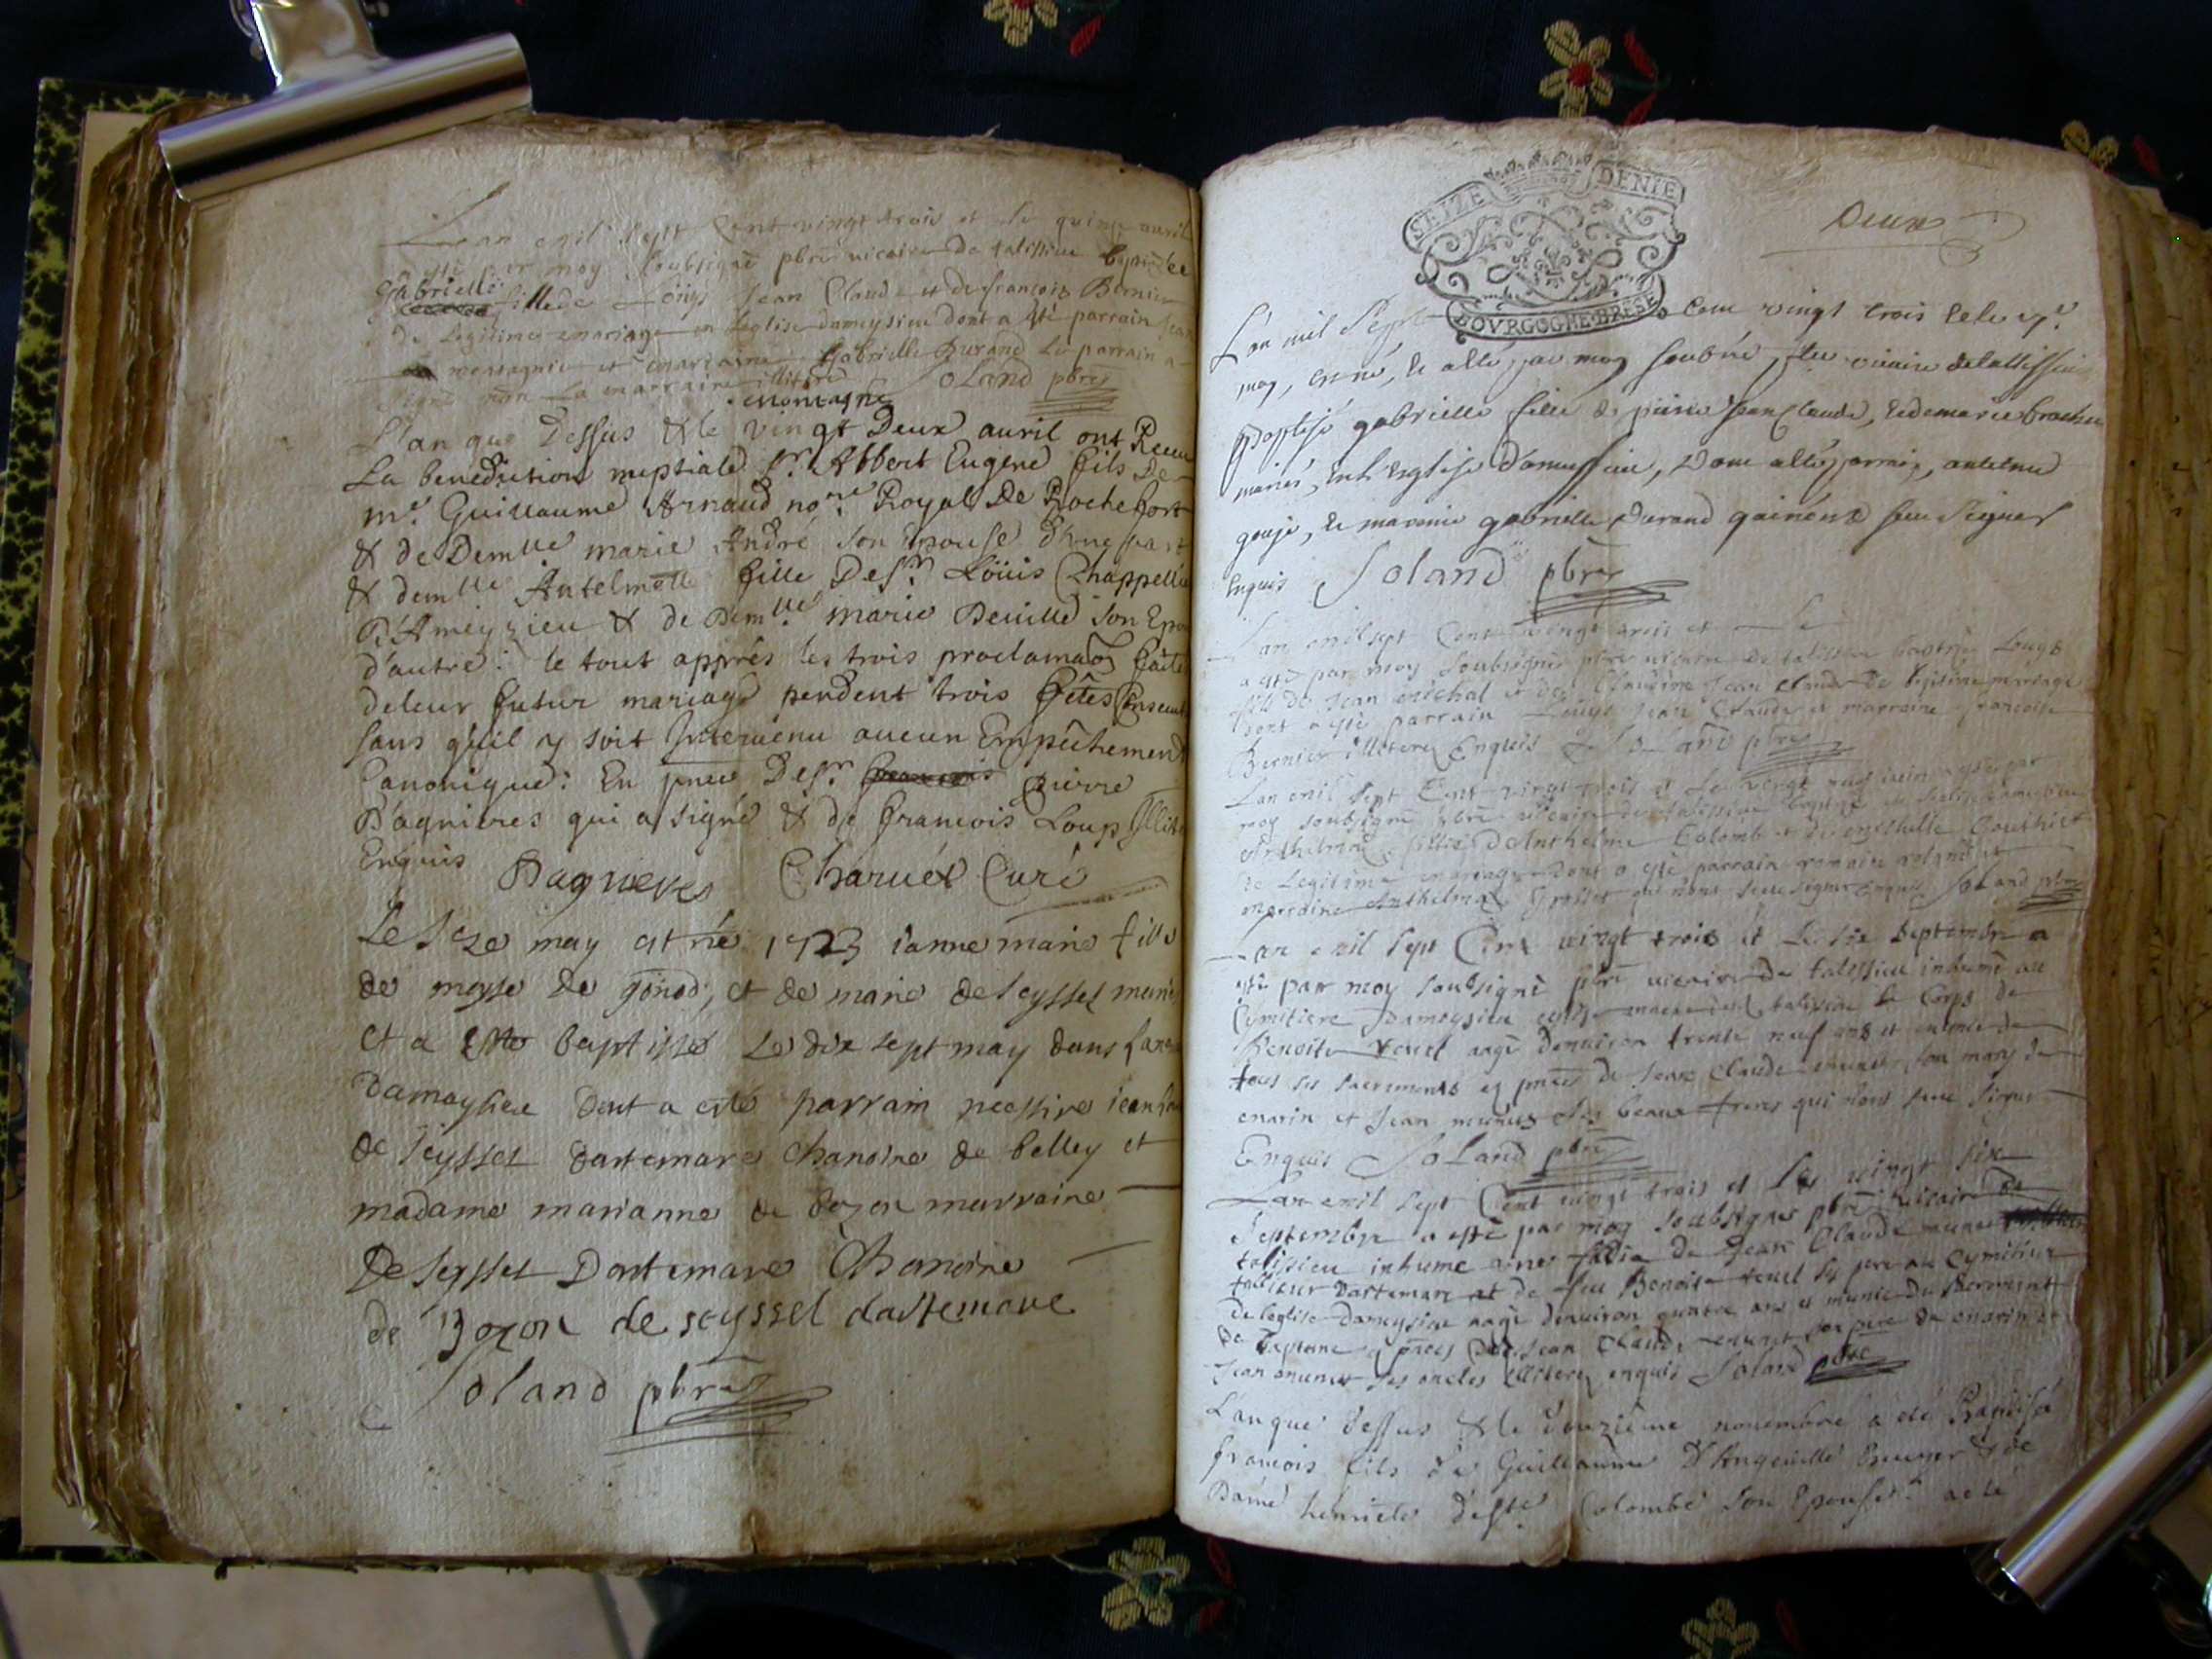 Lan mil sept Cent vingt trois et le quinze auril
esté par moy soubsigné pbrē vicaire de talissieu
Gabrielle fille de Louys Jean Claude et de francois Bernier
de Legitime mariage en Leglise dameysieu dont a esté parrain Jean
montagnie et marraine Gabrielle Durand Le parrain a
signé non La marraine illitere SoLand pbrē
montagne
L'an que Dessus & le vingt Deux auril ont Receu
La benediction nuptiale sr. Albert Eugene fils De
me. Guillaume Arnaud nore. Royal De Rochefort
& de Demlle marie André son Epouse d'une part
& demlle Antelmette fille De sr. Loüis Chappelle
D'Ameyzieu & de Demlle. marie Deville son Epou
d'autre: le tout apprès les trois proclamaōn faite
de leur futur mariage pendent trois fêtes
sans qu'il y soit Interuenu aucun Empêchement
Canonique: En pnce De sr. pierre
Dagnieres qui a signé & de francois Loup Illit
Enquis Dagnieres Charuet Curé
Le seze may est né 1723 ianne marie fille
de moyse de gonod, et de marie de seyssel mariés
et a este baptissé Le dix sept may dans
damaysieu Dont a esté parrain messire iean
de seyssel dartemare chanoine de belley et
madame marianne de bozon marraine
De seyssel Dartemare Chanoine
de Bozon de seyssel dartemare
Soland pbrē
SEIZE DENIE
BOVRGOGNE·BRESSE
Deux
L'an mil Sept Cent vingt trois
may, est né, & a esté par moy soubné, vicaire de tallissieu
Baptisé gabrielle fille de pierre Jean Claude, & de marie
mariés, en L'Eglise d'ameyssieu, Dont a esté parrain, antelme
gouje, & maraine gabrielle Durand qui n'ont sceu signer
Enquis Soland pbrē
Lan mil sept Cent vingt trois et Le
a esté par moy soubsigné pbrē vicaire de talissieu baptisé Louys
fils de Jean michal et de Claudine Jean Claude de legitime mariage
dont a esté parrain Louys Jean Claude et marraine francoise
Bernier illiterez Enquis SoLand pbrē
Lan mil sept Cent vingt trois et Le vingt iuin a esté par
moy soubsigné pbrē vicaire de talissieu baptisé en Leglise dameysieu
Anthelma fillie D'Anthelme Colomb et de michelle Gouthier
de Legitime mariage Dont a esté parrain romain roland et
marraine Anthelma qui n'ont sceu signer Enquis SoLand pbrē
Lan mil sept Cent vingt trois et Le six septembre a
esté par moy soubsigné pbrē vicaire de talissieu inhumé au
Cymitiere Dameysieu talissieu le Corps de
Benoite tenet aagé denuiron trente neuf ans et munie de
tous ses sacrements en pnces de Jean Claude munet son mary de
marin et Jean munet ses beaux freres qui n'ont sceu signer
Enquis SoLand pbrē
Lan mil sept Cent vingt trois et Le vingt six
septembre a esté par moy soubsigné pbrē vicaire de
talissieu inhumé une fillie de Jean Claude munet
tallieur dartemare et de feu Benoite tenet au Cymitiere
de leglise dameysieu aagé denuiron quatre ans et munie du sacrement
de bapteme en pnces de Jean Claude munet son pere de marin et
Jean munet ses oncles illiterez enquis Soland pbrē
L'an que dessus & le douzieme novembre a été Baptisé
francois fils de Guillaume D'Angeville Ecuyer & de
Dame henriete De Ste. Colombe son Epouse: a été